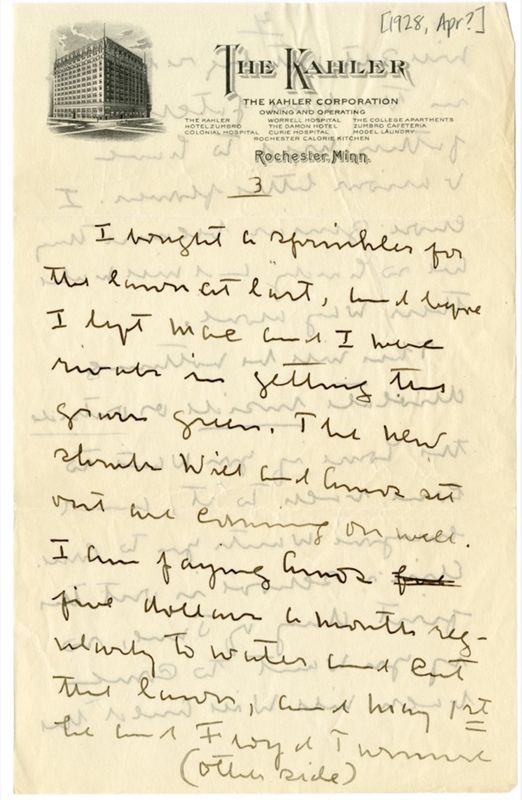 [1928, Apr?]
THE KAHLER
THE KAHLER CORPORATION
OWNING AND OPERATING
THE KAHLER WORRELL HOSPITAL THE COLLEGE APARTMENTS
HOTEL ZUMBRO THE DAMON HOTEL ZUMBRO CAFETERIA
COLONIAL HOSPITAL CURIE HOSPITAL MODEL LAUNDRY
ROCHESTER CALORIE KITCHEN
Rochester, Minn.
3
I bought a sprinkler for
the lawn at last, and before
I left Mac and I were
rivals in getting the
grass green. The new
shrubs Will and Amos set
out are coming on well.
I am paying Amos five
five dollars a month reg-
ularly to water and cut
the lawn, and May 1st
he and Floyd
(other side)